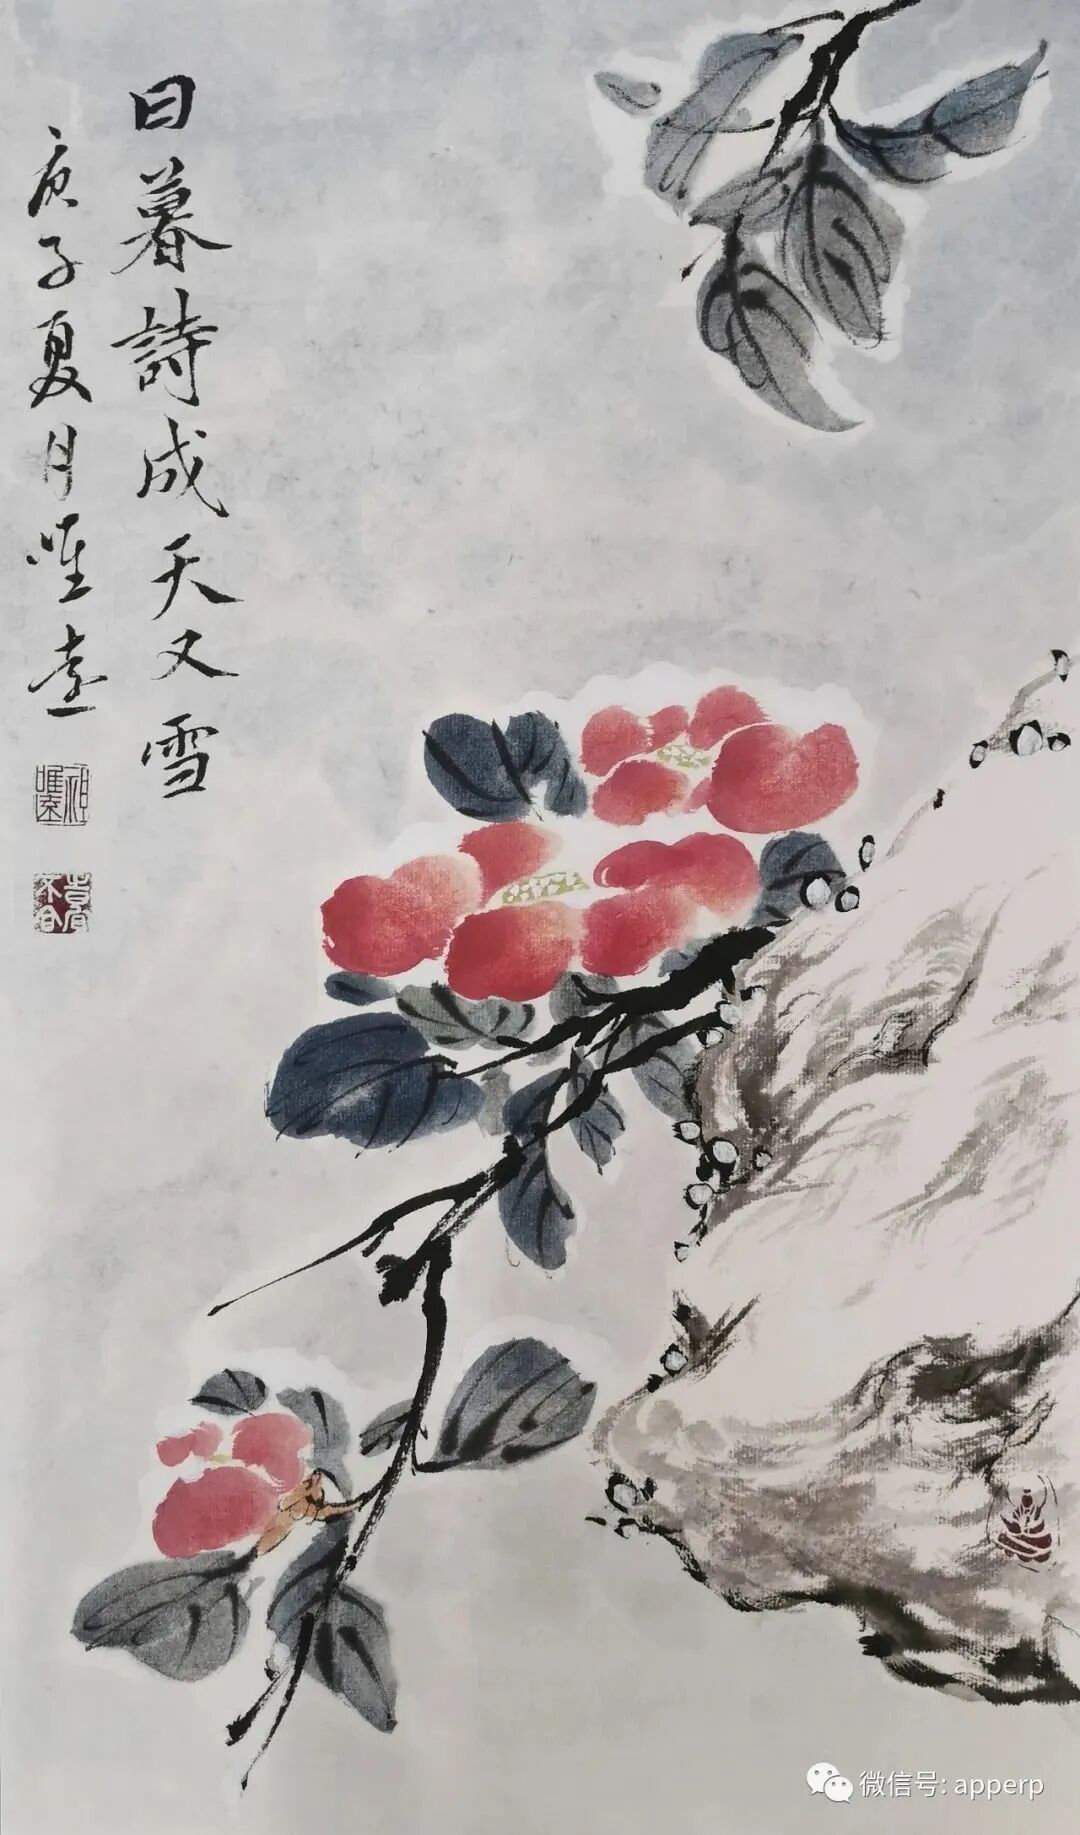 日暮詩成天又雪
庚子夏月唯遠
微信号: apperp